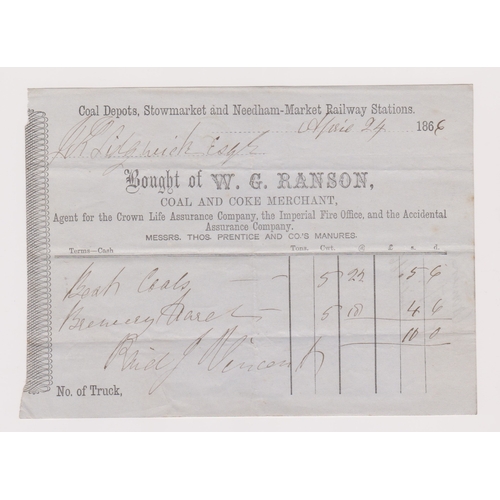 Coal Depots, Stowmarket and Needham-Market Railway Stations.
24 1866
Esqr
Bought of W. G. RANSON,
COAL AND COKE MERCHANT,
Agent for the Crown Life Assurance Company, the Imperial Fire Office, and the Accidental
Assurance Company.
MESSRS. THOS. PRENTICE AND CO.'S MANURES.
Terms—Cash Tons. Cwt. @ £ s. d.
Coals 5 22 5 6
Brewery 5 18 4 6
10 0
Paid J Vincent
No. of Truck,